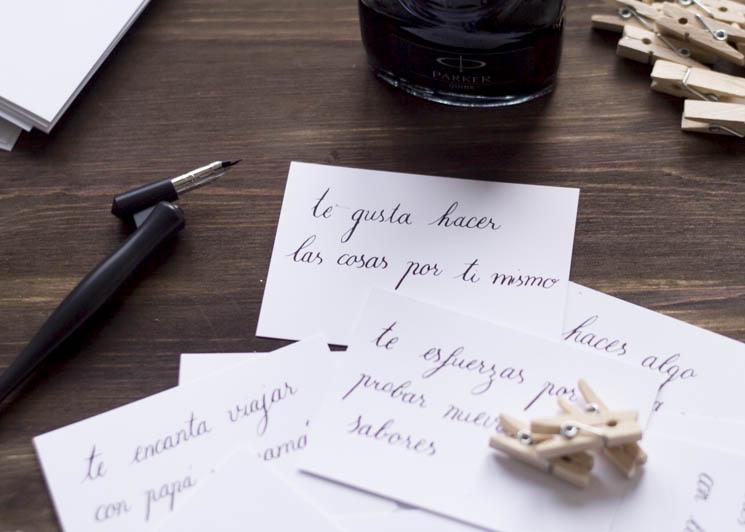 PARKER
QUINK
te gusta hacer
las cosas por ti mismo
haces algo
te esfuerzas por
probar
sabores
te encanta viajar
con papá